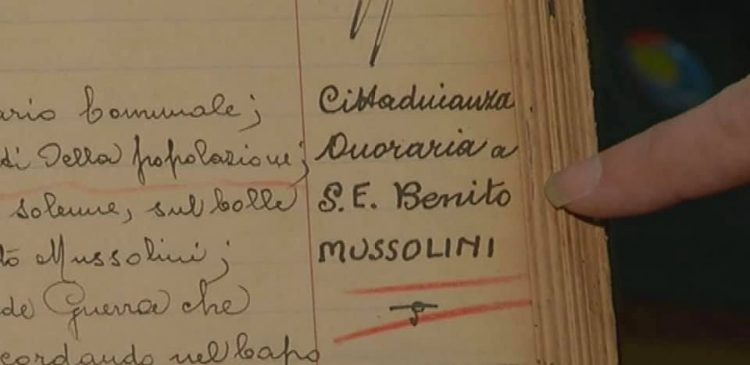 ario Comunale;
di della popolazione;
solenne, sul colle
to Mussolini;
de Guerra che
cordando nel Capo
Cittadinanza
Onoraria a
S.E. Benito
MUSSOLINI